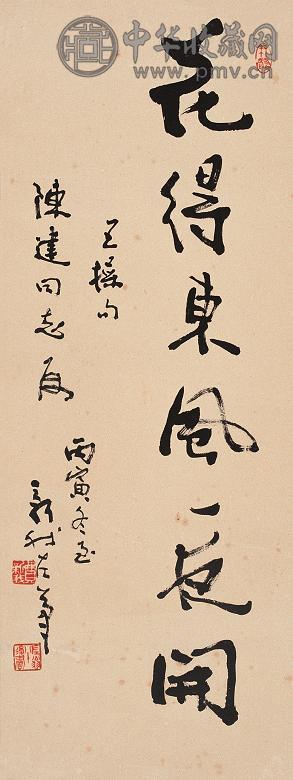 中华收藏网
www.pmv.cn
花得東風一夜開
王操句
陳建同志
丙寅冬至
新我左筆